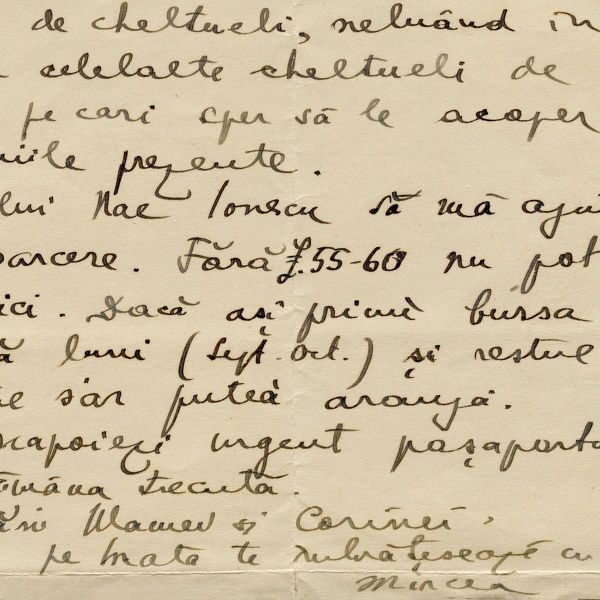 de cheltueli, neluând în
celelalte cheltueli de
pe cari sper să le acoper
niile prezente.
lui Nae Ionescu să mă aju
oarcere. Fără £.55-60 nu pot
ici. Dacă aşi primi bursa
ă luni (Sept. Oct.) şi restul
le s'ar putea aranja.
napoiezi urgent paşaportu
tămâna trecută.
ări Mamei şi Corinei,
pe tata te îmbrăţişează cu
Mircea